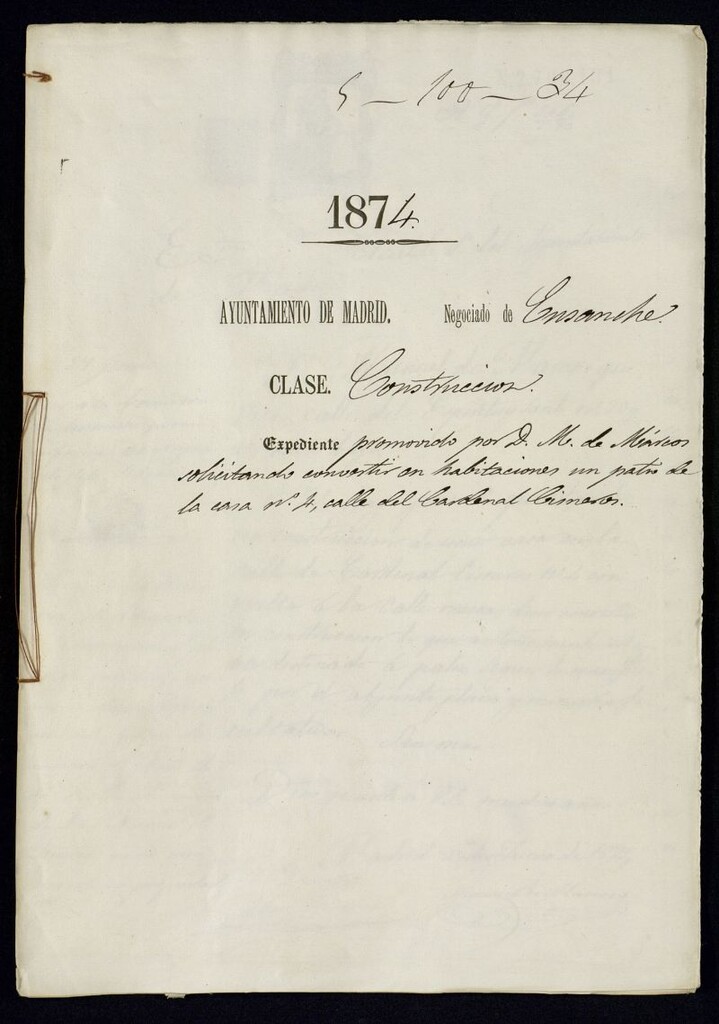 5 - 100 - 34
1874.
AYUNTAMIENTO DE MADRID. Negociado de Ensanche.
CLASE. Construccion.
Expediente promovido por D. M. de Márcos
solicitando convertir en habitaciones un patio de
la casa nº 4, calle del Cardenal Cisneros.